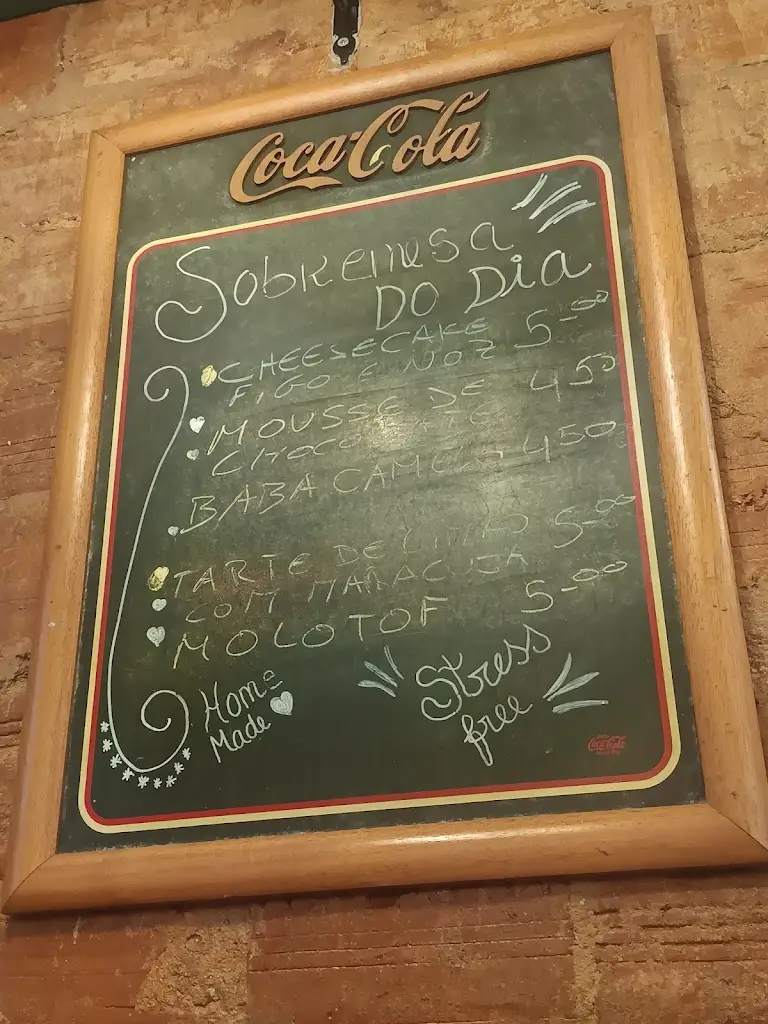 Coca-Cola
Sobremesa
DO DIA
CHEESECAKE 5-00
FIGO E NOZ
MOUSSE DE 450
CHOCOLATE
BABA CAMELO 450
TARTE DE LIMÃO 5-00
COM MARACUJA
MOLOTOF 5-00
Home
Made
Stress
free
Coca-Cola